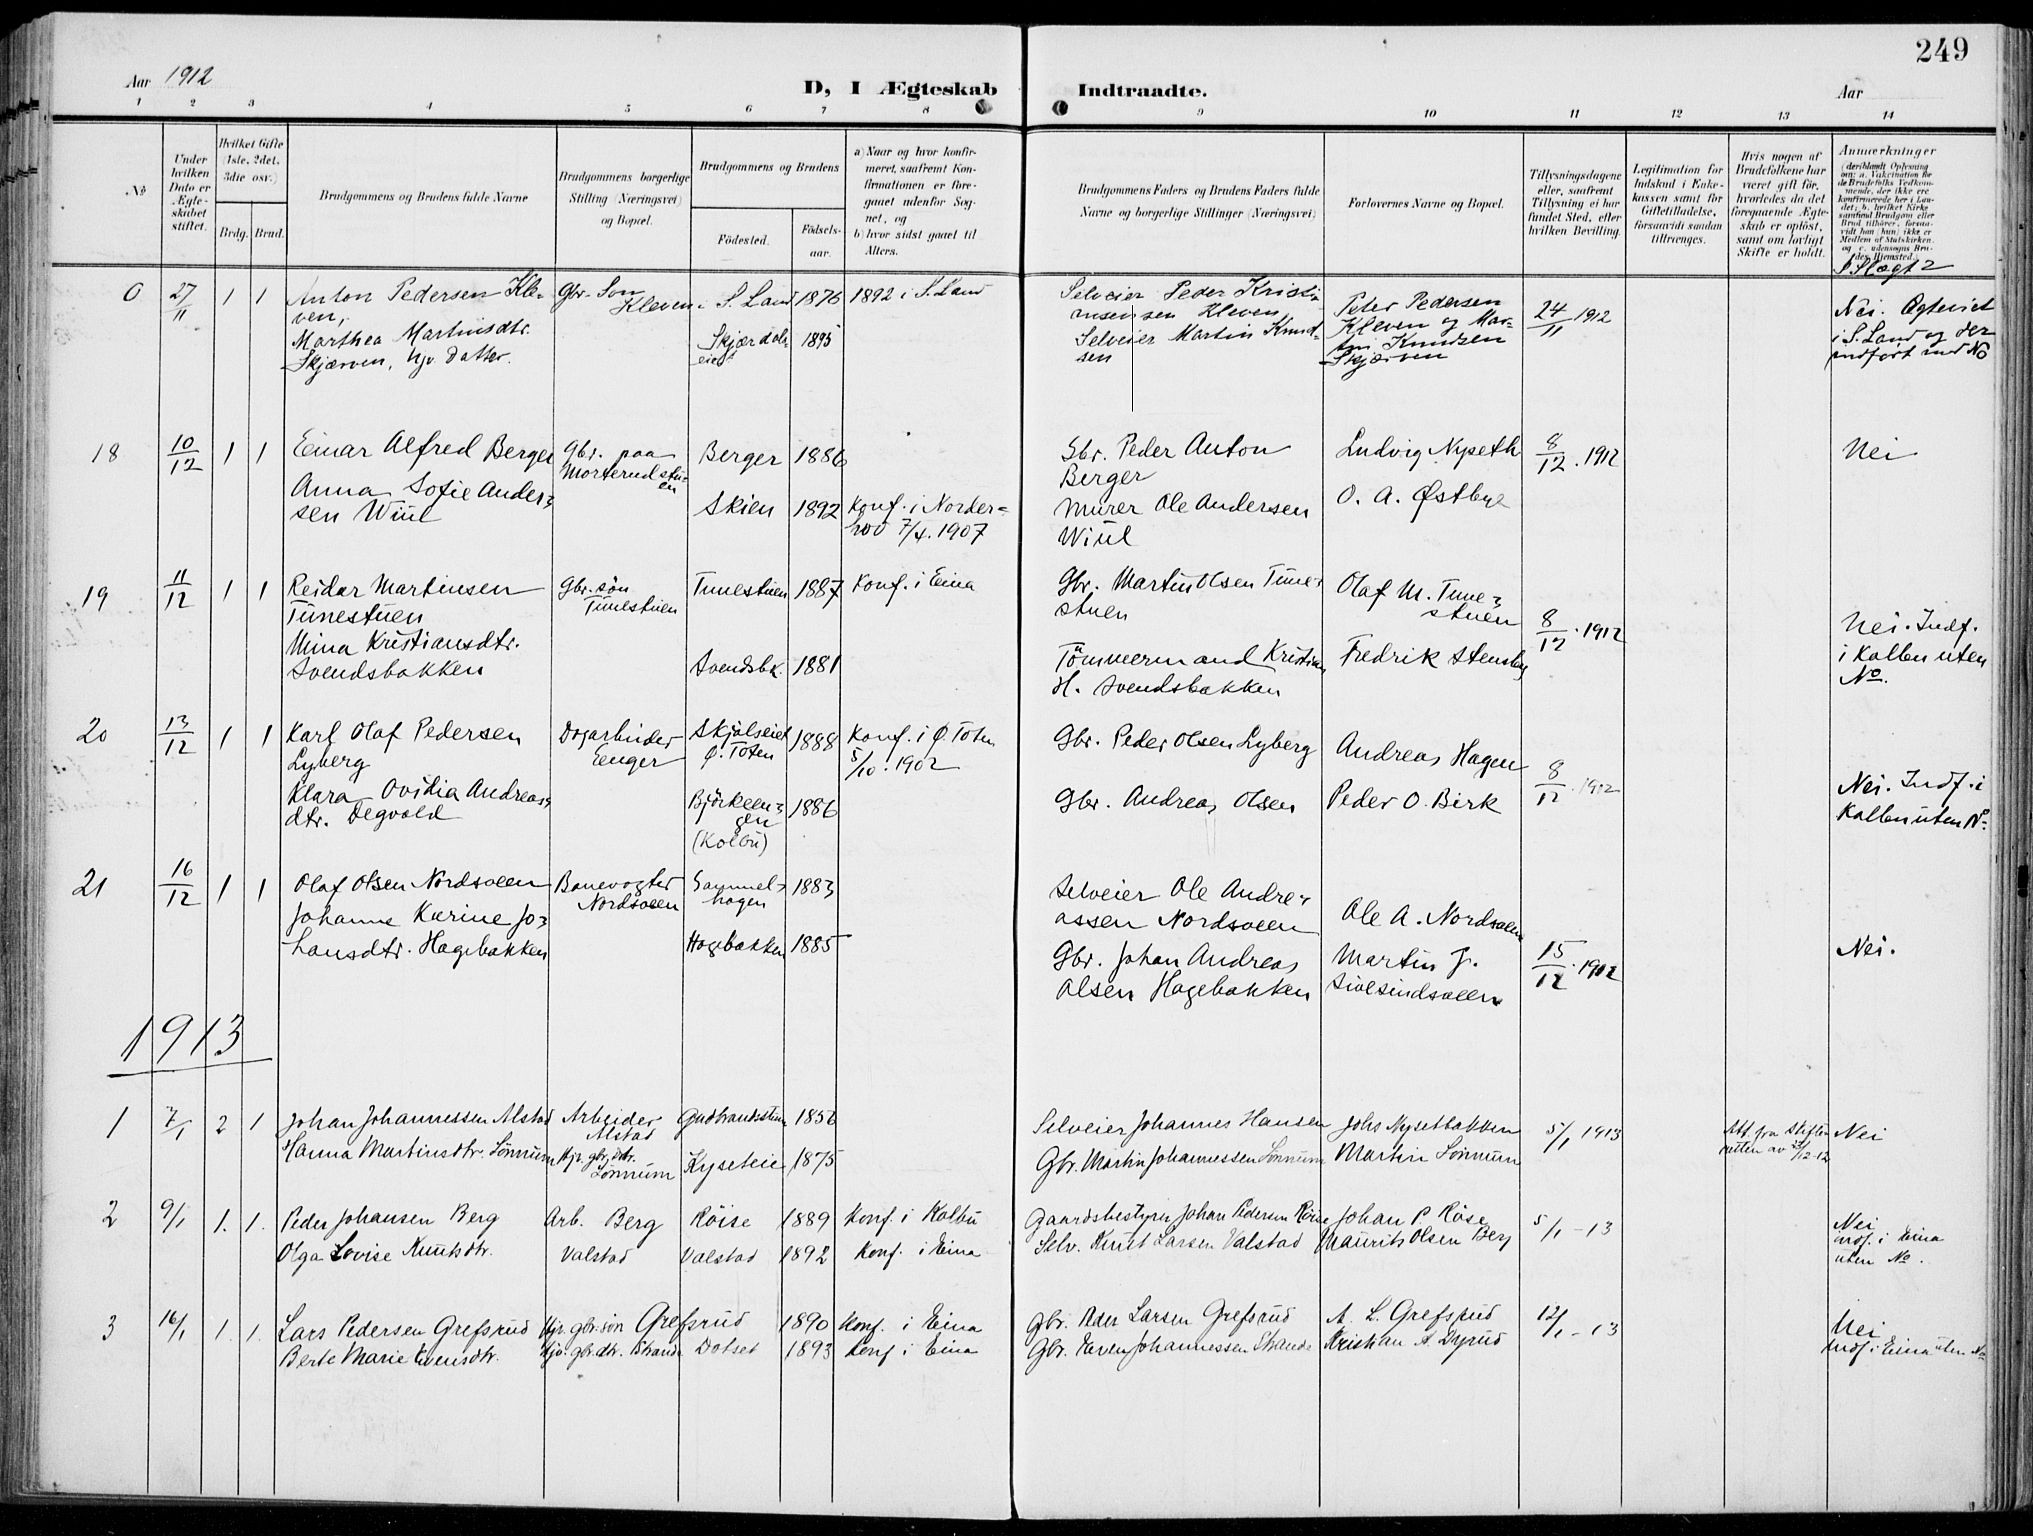 249
Aar 1912
D, I Ægteskab Indtraadte.
Aar
1 2 3 4 5 6 7 8 9 10 11 12 13 14
No
Under hvilken Dato er Ægteskabet stiftet.
Hvilket Gifte (1ste, 2det, 3die osv.)
Brdg. Brud.
Brudgommens og Brudens fulde Navne
Brudgommens borgerlige Stilling (Næringsvei) og Bopæl.
Brudgommens og Brudens
Fødested. Fødsels-aar.
a) Naar og hvor konfirmeret, saafremt Konfirmationen er foregaaet udenfor Sognet, og
b) hvor sidst gaaet til Alters.
Brudgommens Faders og Brudens Faders fulde Navne og borgerlige Stillinger (Næringsvei)
Forlovernes Navne og Bopæl.
Tillysningsdagene eller, saafremt Tillysning ei har fundet Sted, efter hvilken Bevilling.
Legitimation for Indskud i Enkekassen samt for Giftetilladelse, forsaavidt saadan tiltrænges.
Hvis nogen af Brudefolkene har været gift før, hvorledes da det foregaaende Ægteskab er opløst, samt om lovligt Skifte er holdt.
Anmærkninger
(deriblandt Oplysning om: a. Vaccination for de Brudefolks Vedkommende, der ikke ere konfirmerede her i Landet; b. hvilket Kirkesamfund Brudgom eller Brud tilhører, forsaavidt han (hun) ikke er Medlem af Statskirken, og c. udensogns Brudes Hjemsted.)
I Slægt?
0 27/11 1 1 Anton Pedersen Kleven, Gbr. Søn Kleven S. Land 1876 1892 i S. Land
Marthea Martinsdtr. Skjærven, hjv. datter. Skjærdalseiet 1895
Selveier Peder Kristiansen Kleven
Selveier Martin Knudsen
Peter Pedersen Kleven og Martin Knudsen Skjærven
24/11 1912
Nei. Egteviet i S. Land og der indført med No
18 10/12 1 1 Einar Alfred Berger Gbr. paa Morterudstuen Berger 1886
Anna Sofie Andersen Wiul Skien 1892 Konf. i Norderhov 7/4. 1907
Gbr. Peder Anton Berger
Murer Ole Andersen Wiul
Ludvig Nyseth
O. A. Østbye
8/12. 1912
Nei
19 11/12 1 1 Reidar Martinsen Tunestuen Gbr. søn Tunestuen Tunestuen 1887 Konf. i Eina
Mina Kristiansdtr. Svendsbakken Svendsbk. 1881
Gbr. Martin Olsen Tunestuen
Tömmermand Kristian H. Svendsbakken
Olaf M. Tunestuen
Fredrik Stensby
8/12. 1912
Nei. Indf. i Kolbu uten No.
20 13/12 1 1 Karl Olaf Pedersen Lyberg Dagarbeider Eenger Skjölseiet Ø. Toten 1888 Konf. i Ø. Toten 5/10. 1902
Klara Ovidia Andreasdtr. Degvold Björkeengen (Kolbu) 1886
Gbr. Peder Olsen Lyberg
Gbr. Andreas Olsen
Andreas Hagen
Peder O. Birk
8/12. 1912
Nei. Indf. i Kolbu uten No.
21 16/12 1 1 Olaf Olsen Nordsveen Banevogter Nordsveen Gammelhagen 1883
Johanne Karine Johansdtr. Hagebakken Hagebakken 1885
Selveier Ole Andreassen Nordsveen
Gbr. Johan Andreas Olsen Hagebakken
Ole A. Nordsveen
Martin J. Sivesindsveen
15/12. 1912
Nei.
1913
1 7/1 2 1 Johan Johannessen Alstad Arbeider Alstad Gudbrandsstuen 1856
Hanna Martinsdtr. Lönnum Hjv. gbr. dtr. Lönnum Kyseteie 1875
Selveier Johannes Hansen
Gbr. Martin Johannessen Lönnum
Johs Nysetbakken
Martin Lönnum
5/1 1913
Att. fra Skifteretten av 12-12
Nei
2 9/1 1. 1. Peder Johansen Berg Arb. Berg Röise 1889 Konf. i Kolbu
Olga Lovise Knutsdtr. Valstad Valstad 1892 Konf. i Eina
Gaardsbestyrer Johan Pedersen Röise
Selv. Knut Larsen Valstad
Johan P. Röise
Maurits Olsen Berg
5/1 - 13
Nei indf. i Eina uten No.
3 16/1 1. 1. Lars Pedersen Grefsrud Hjv. gbr. søn Grefsrud 1890 Konf. i Eina
Berte Marie Evensdtr. Hjv. gbr. dtr. Strande Dotset 1893 Konf. i Eina
Gbr. Peder Larsen Grefsrud
Gbr. Even Johannessen Strande
A. L. Grefsrud
Kristian A. Dyrud
12/1 - 13
Nei
Indf. i Eina uten No